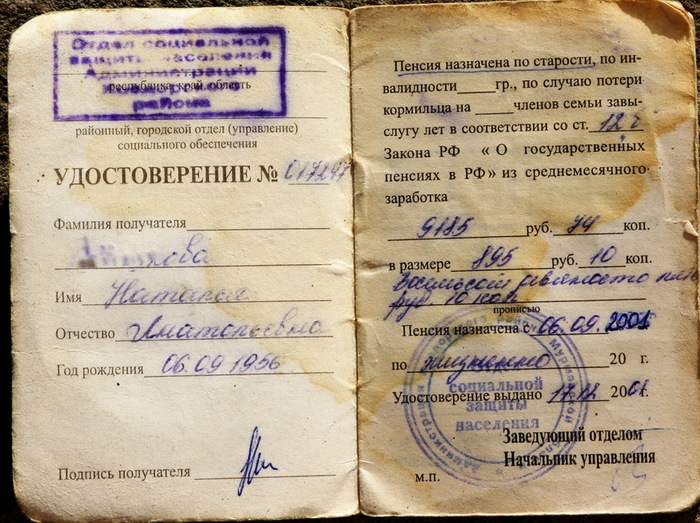 Отдел социальной
защиты населения
Администрации
района
республика, край, область
районный, городской отдел (управление)
социального обеспечения
УДОСТОВЕРЕНИЕ № 017247
Фамилия получателя
Имя Наталья
Отчество Анатольевна
Год рождения 06.09.1956
Подпись получателя
Пенсия назначена по старости, по ин-
валидности гр., по случаю потери
кормильца на членов семьи завы-
слугу лет в соответствии со ст. 12 г
Закона РФ « О государственных
пенсиях в РФ» из среднемесячного
заработка
9185 руб. 74 коп.
в размере 895 руб. 10 коп.
Восемьсот девяносто пять
руб 10 коп
прописью
Пенсия назначена с 06.09. 2001
по жизненно 20 г.
социальной
защиты
населения
Удостоверение выдано 17.12 2001.
Заведующий отделом
Начальник управления
м.п.